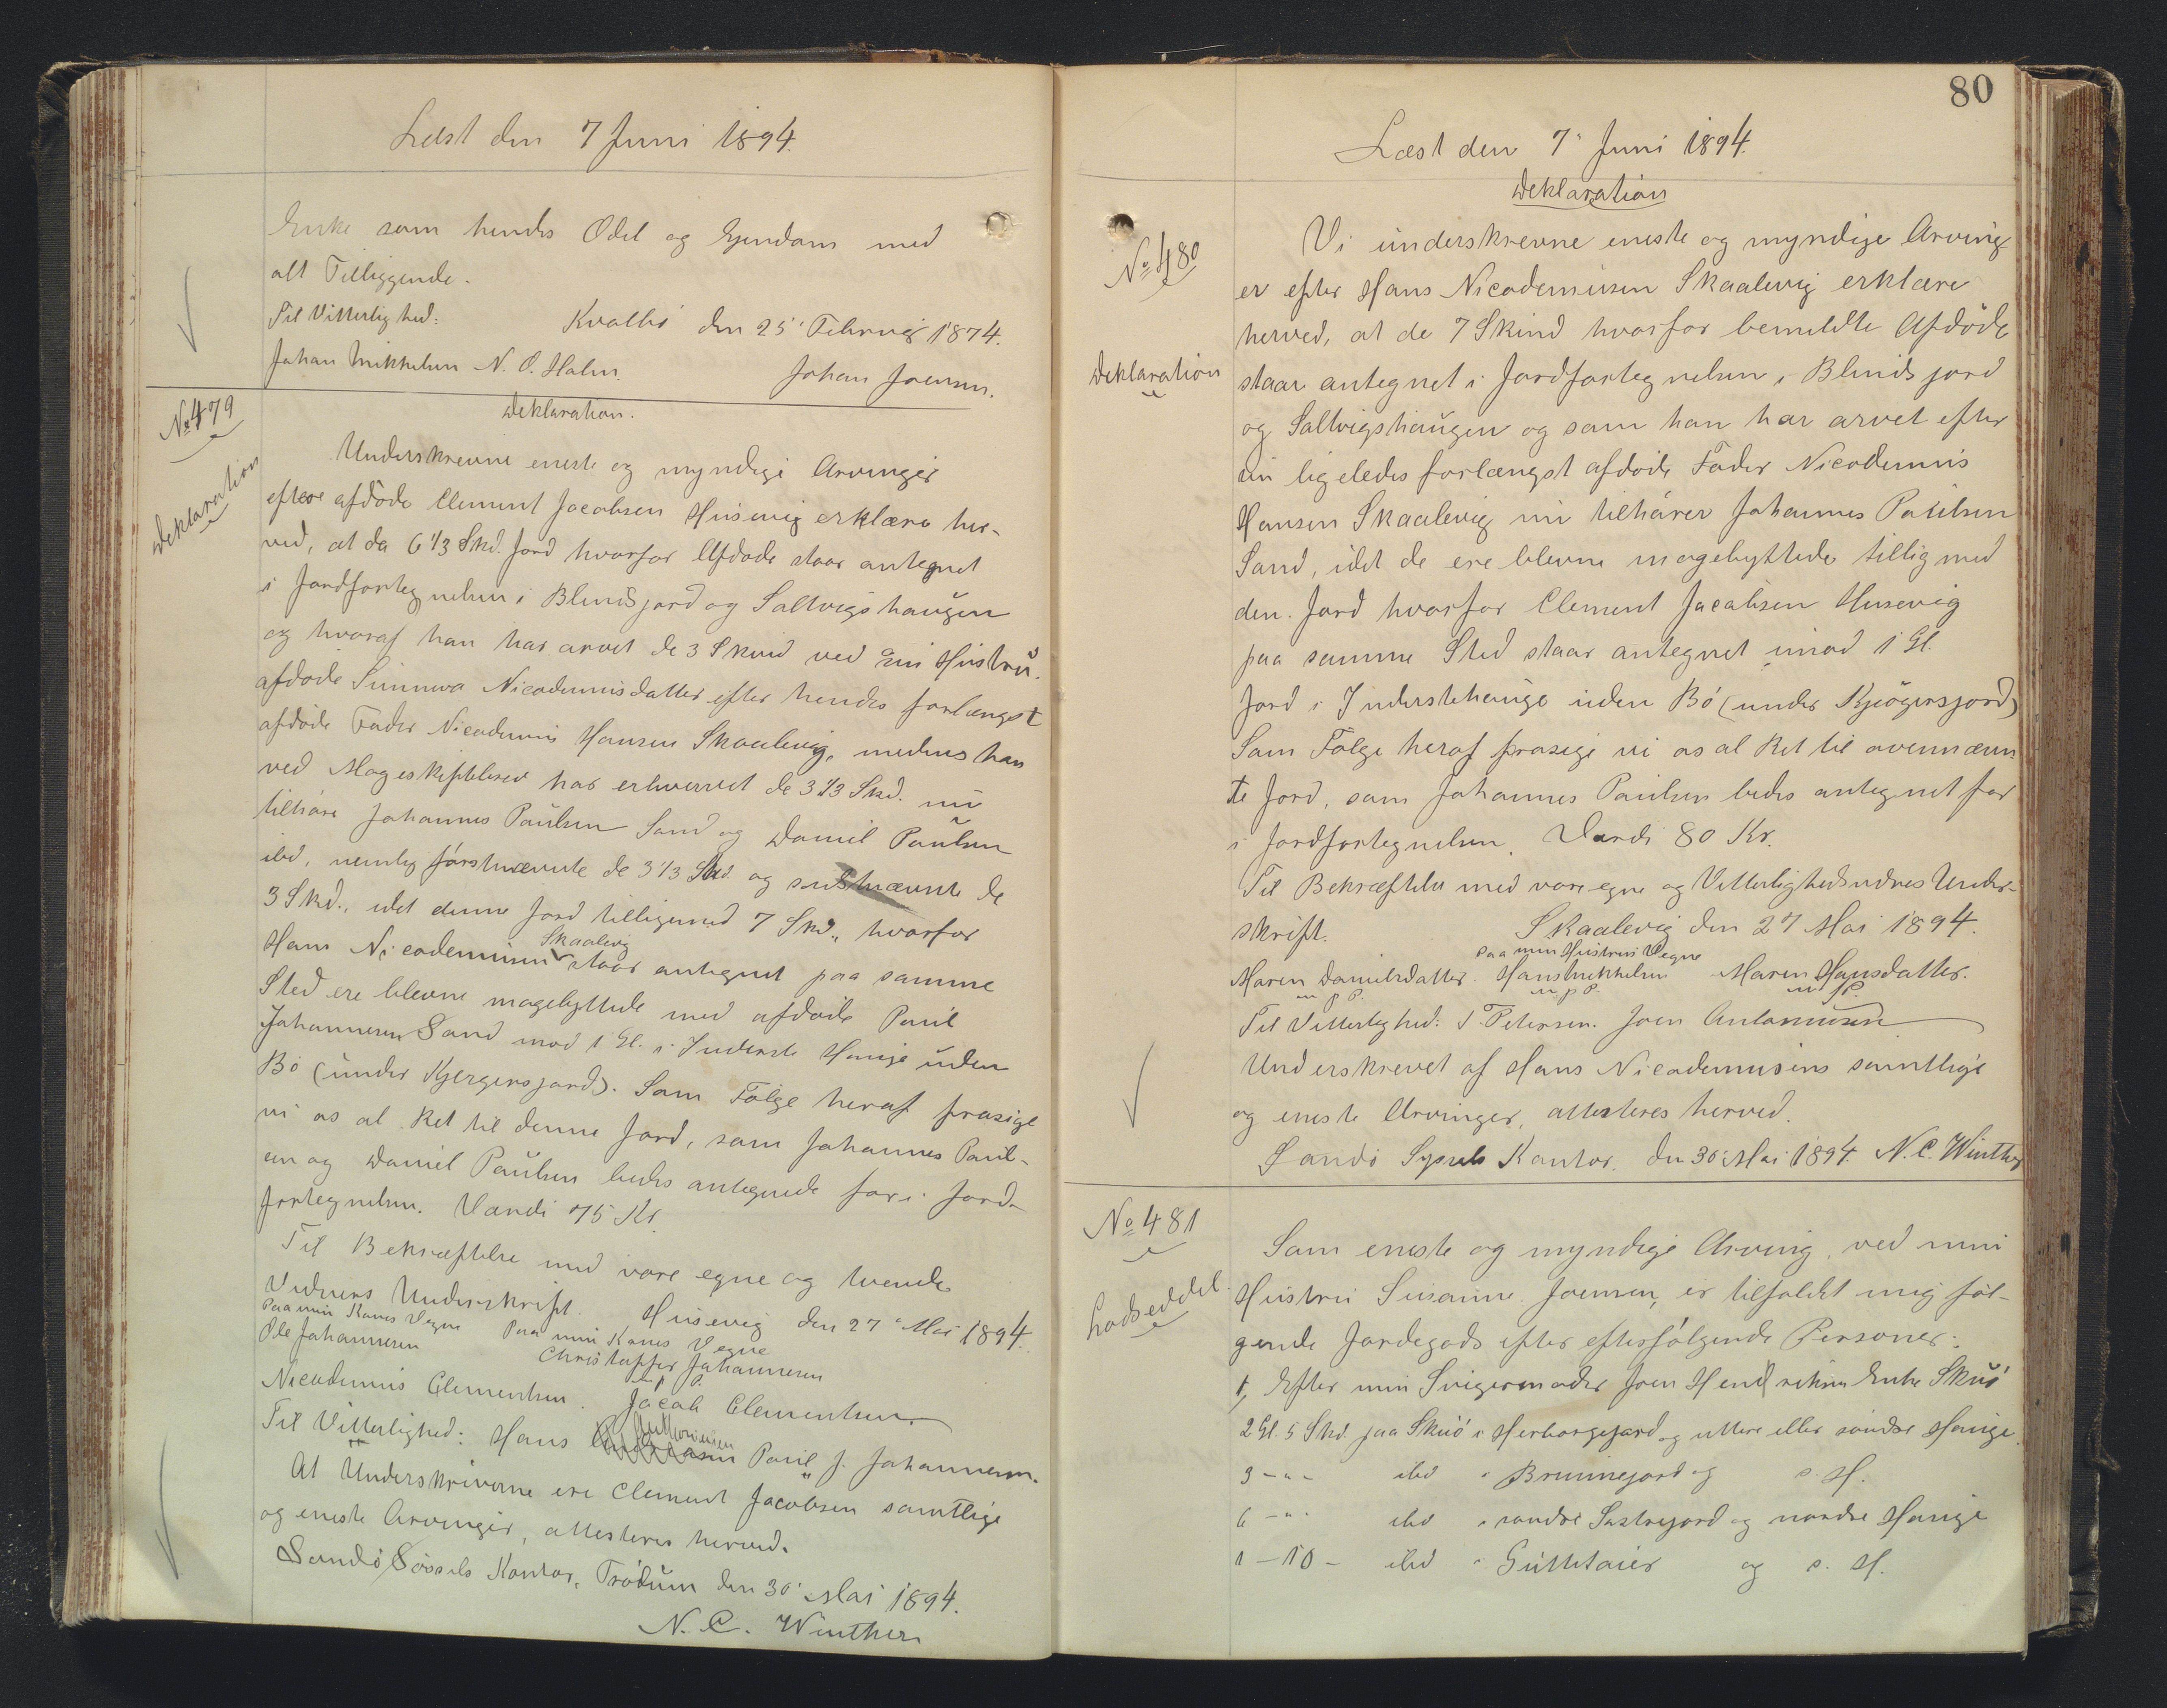 Læst den 7 Juni 1894.
Enke som hendes Odel og Ejendom med
alt Tilliggende.
Til Vitterlighed:
Kvalbö den 25' Februar 1874.
Johan Mikkelsen N. O. Holm.
Johan Joensen.
No 479
Deklaration
Deklaration.
Underskrevne eneste og myndige Arvinger
efter afdøde Clement Jacobsen Husevig erklære her-
ved, at de 6 1/3 Skd. Jord hvorfor Afdøde staar antegnet
i Jordfortegnelsen i Blindsjord og Saltvigshaugen
og hvoraf han har arvet de 3 Skind ved sin Hustru
afdøde Sunneva Nicodemusdatter efter hendes forlængst
afdøde Fader Nicodemus Hansen Skaalevig, medens han
ved Mageskiftebrev har erhvervet de 3 1/3 Skd. nu
tilhøre Johannes Paulsen Sand og Daniel Paulsen
ibd, nemlig förstnævnte de 3 1/3 Skd. og sidstnævnte de
3 Skd., idet denne Jord tilligemed 7 Skd., hvorfor
Hans Nicodemusen Skaalevig staar antegnet paa samme
Sted ere blevne magebyttede med afdøde Paul
Johannesen Sand mod 1 Gl. i Inderste Hauge uden
Bö (under Kjergersjord). Som Følge heraf frasige
vi os al Ret til denne Jord, som Johannes Paul-
sen og Daniel Paulsen bedes antegnede for i Jord-
fortegnelsen. Værdi 75 Kr.
Til Bekræftelse med vore egne og tvende
Vidners Underskrift. Husevig den 27' Mai 1894.
Paa min Kones Vegne Paa min Kones Vegne
Ole Johannesen Christoffer Johannesen
m. p. P.
Nicodemus Clementsen. Jacob Clementsen.
Til Vitterlighed: Hans Paul J. Johannesen.
At Underskriverne ere Clement Jacobsen samtlige
og eneste Arvinger, attesteres herved.
Sandö Syssels Kontor, Trödum den 30' Mai 1894.
N. C. Winther
80
Læst den 7' Juni 1894.
Deklaration
No 480
Deklaration
Vi underskrevne eneste og myndige Arving-
er efter Hans Nicodemusen Skaalevig erklære
herved, at de 7 Skind hvorfor bemeldte Afdöde
staar antegnet i Jordfortegnelsen i Blindsjord
og Saltvigshaugen og som han har arvet efter
sin ligeledes forlængst afdöde Fader Nicodemus
Hansen Skaalevig nu tilhører Johannes Paulsen
Sand, idet de ere blevne magebyttede tillig med
den Jord hvorfor Clement Jacobsen Husevig
paa samme Sted staar antegnet imod 1 Gl.
Jord i Inderstehauge uden Bö (under Kjøgersjord)
Som Følge heraf frasige vi os al Ret til ovennævn-
te Jord, som Johannes Paulsen bedes antegnet for
i Jordfortegnelsen. Værdi 80 Kr.
Til Bekræftelse med vore egne og Vitterlighedsvidnes Under-
skrift. Skaalevig den 27 Mai 1894.
paa min Hustrus Vegne
Maren Danielsdatter. Hans Mikkelsen Maren Hansdatter.
m p P. m p P. m p P.
Til Vitterlighed: T. Petersen. Joen Antoniusen
Underskrevet af Hans Nicodemusens samtlige
og eneste Arvinger, attesteres herved.
Sandö Syssels Kontor, den 30' Mai 1894. N. C. Winther
No 481
Lodseddel.
Som eneste og myndige Arving, ved min
Hustru Susanne Joensen, er tilfaldet mig föl-
gende Jordegods efter efterfölgende Personer:
1, Efter min Svigermoder Joen Hendriksens Enke Skuö
2 Gl. 5 Skd. paa Skuö i Herborgejord og uttere eller söndre Hauge.
3 - " - ibd " Brunnejord og s. H.
6 - " - ibd " søndre Sastrejord og nordre Hauge
1 - 10 - ibd " og s. H.